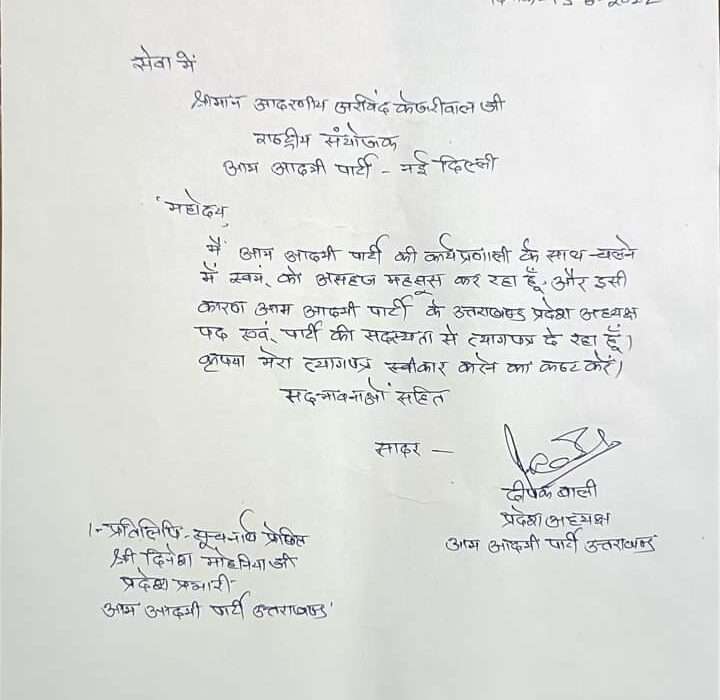 सेवा में
श्रीमान आदरणीय अरविंद केजरीवाल जी
राष्ट्रीय संयोजक
आम आदमी पार्टी - नई दिल्ली
महोदय,
मैं आम आदमी पार्टी की कार्यप्रणाली के साथ चलने
में स्वयं को असहज महसूस कर रहा हूँ, और इसी
कारण आम आदमी पार्टी के उत्तराखण्ड प्रदेश अध्यक्ष
पद एवं पार्टी की सदस्यता से त्यागपत्र दे रहा हूँ।
कृपया मेरा त्यागपत्र स्वीकार करने का कष्ट करें।
सदभावनाओं सहित
सादर —
दीपक बाली
प्रदेश अध्यक्ष
आम आदमी पार्टी उत्तराखण्ड
1- प्रतिलिपि- सूचनार्थ प्रेषित
श्री दिनेश मोहनिया जी
प्रदेश प्रभारी
आम आदमी पार्टी उत्तराखण्ड